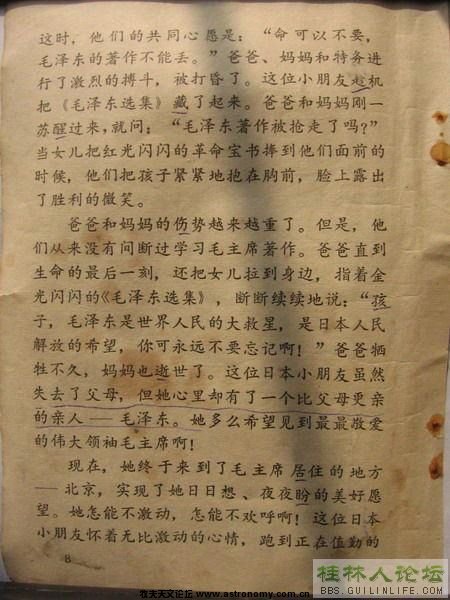 这时，他们的共同心愿是：“命可以不要，
毛泽东的著作不能丢。”爸爸、妈妈和特务进
行了激烈的搏斗，被打昏了。这位小朋友趁机
把《毛泽东选集》藏了起来。爸爸和妈妈刚一
苏醒过来，就问：“毛泽东著作被抢走了吗？”
当女儿把红光闪闪的革命宝书捧到他们面前的
时候，他们把孩子紧紧地抱在胸前，脸上露出
了胜利的微笑。
爸爸和妈妈的伤势越来越重了。但是，他
们从来没有间断过学习毛主席著作。爸爸直到
生命的最后一刻，还把女儿拉到身边，指着金
光闪闪的《毛泽东选集》，断断续续地说：“孩
子，毛泽东是世界人民的大救星，是日本人民
解放的希望，你可永远不要忘记啊！”爸爸牺
牲不久，妈妈也逝世了。这位日本小朋友虽然
失去了父母，但她心里却有了一个比父母更亲
的亲人——毛泽东。她多么希望见到最最敬爱
的伟大领袖毛主席啊！
现在，她终于来到了毛主席居住的地方
——北京，实现了她日日想、夜夜盼的美好愿
望。她怎能不激动，怎能不欢呼啊！这位日本
小朋友怀着无比激动的心情，跑到正在值勤的
8
牧夫天文论坛 www.astronomy.com.cn
桂林人论坛
BBS.GUILINLIFE.COM